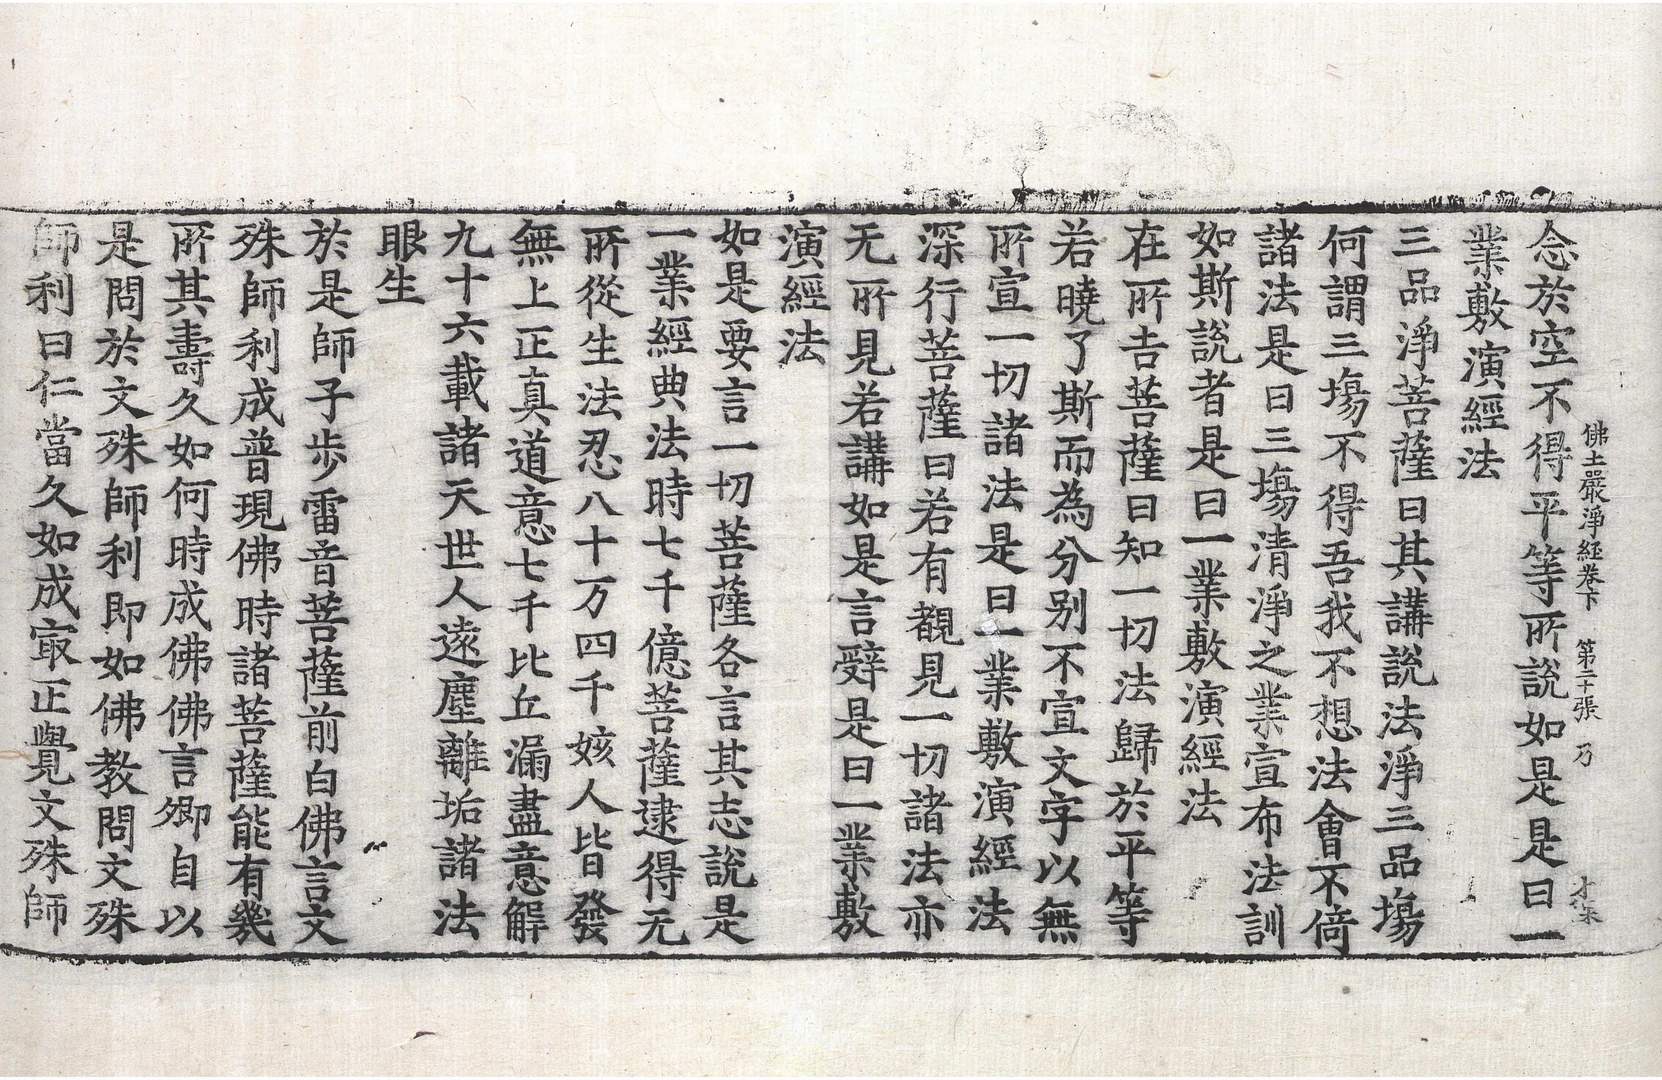 佛土嚴淨經卷下 第二十張 乃
念於空不得平等所說如是是曰一
業敷演經法
三品淨菩薩曰其講說法淨三品塲
何謂三塲不得吾我不想法會不倚
諸法是曰三塲清淨之業宣布法訓
如斯說者是曰一業敷演經法
在所吿菩薩曰知一切法歸於平等
若曉了斯而為分別不宣文字以無
所宣一切諸法是曰一業敷演經法
深行菩薩曰若有覩見一切諸法亦
无所見若講如是言辭是曰一業敷
演經法
如是要言一切菩薩各言其志說是
一業經典法時七千億菩薩逮得无
所從生法忍八十万四千姟人皆發
無上正真道意七千比丘漏盡意解
九十六載諸天世人遠塵離垢諸法
眼生
於是師子步雷音菩薩前白佛言文
殊師利成普現佛時諸菩薩能有幾
所其壽久如何時成佛佛言卿自以
是問於文殊師利即如佛教問文殊
師利曰仁當久如成㝡正覺文殊師